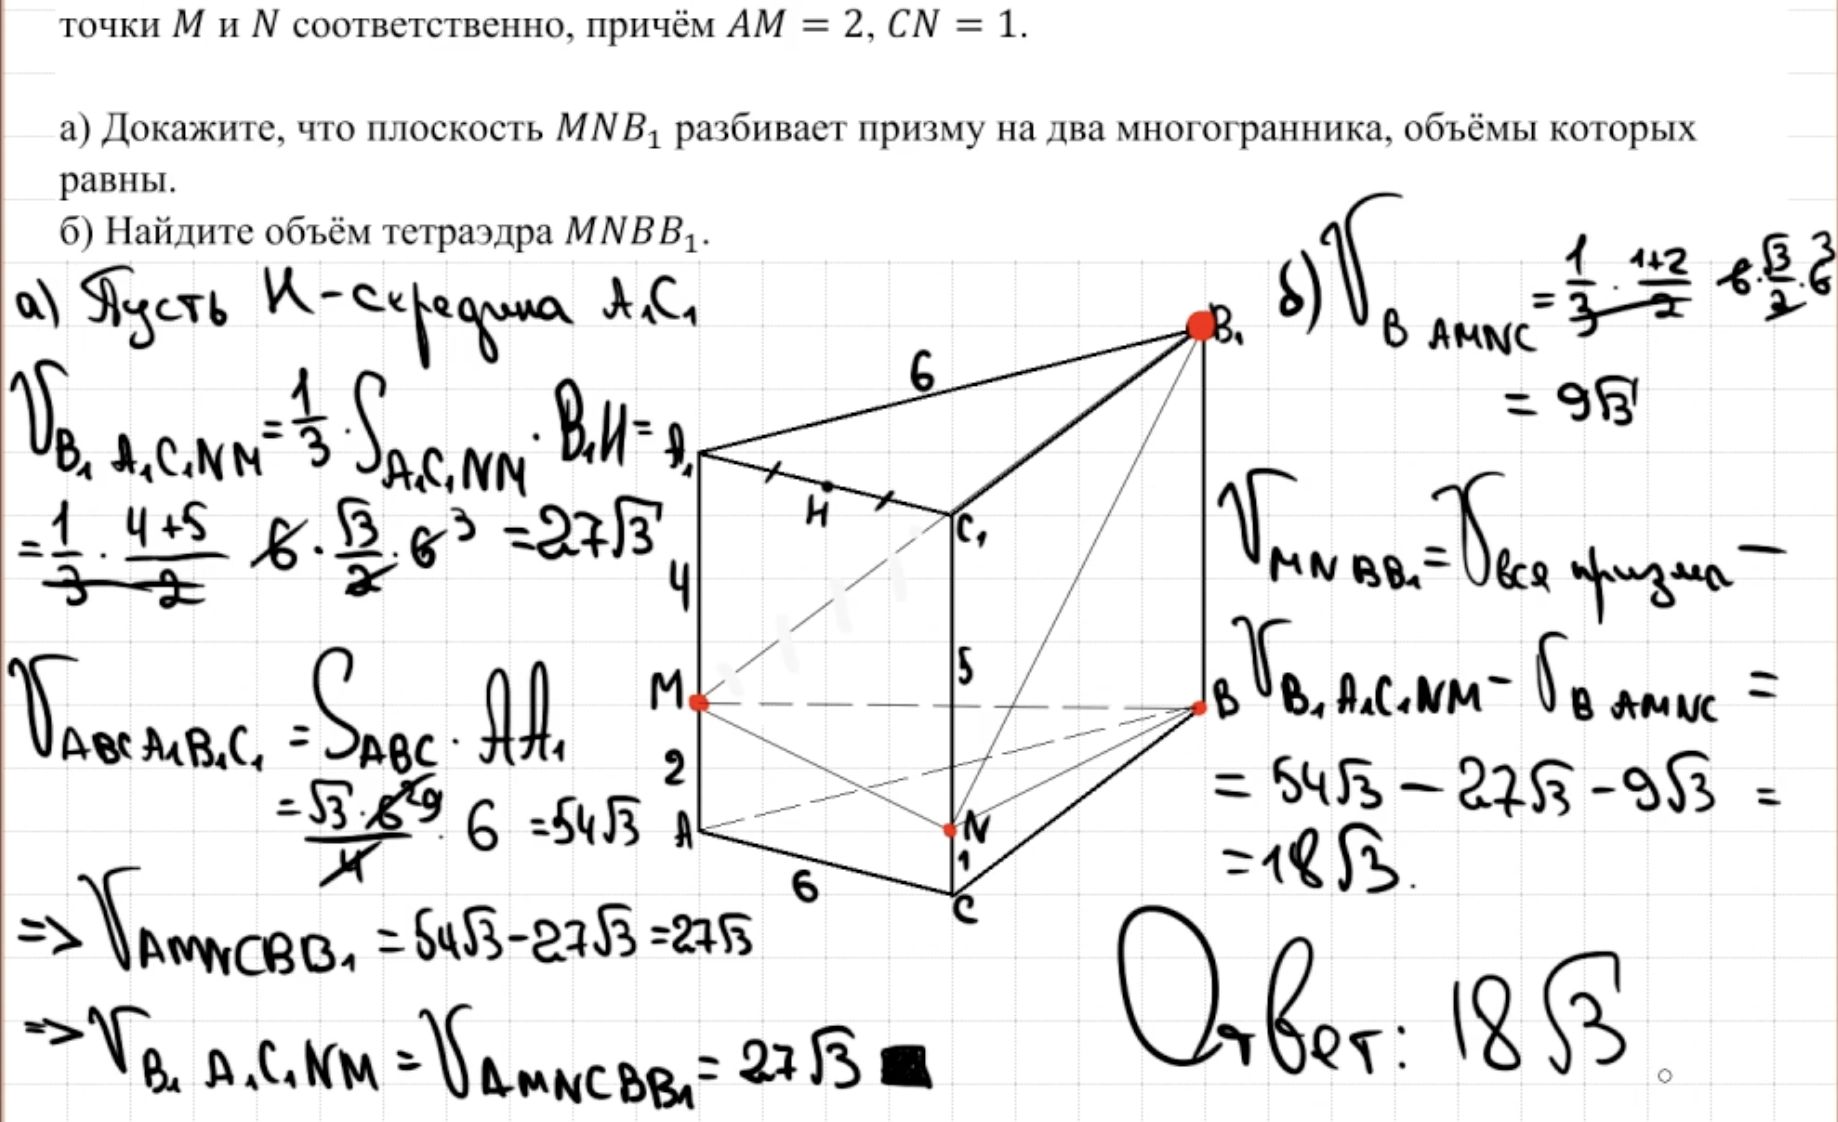 точки M и N соответственно, причём AM = 2, CN = 1.
а) Докажите, что плоскость MNB₁ разбивает призму на два многогранника, объёмы которых
равны.
б) Найдите объём тетраэдра MNBB₁.
а) Пусть H - середина A₁C₁
V B₁A₁C₁NM = 1/3 · S A₁C₁NM · B₁H =
= 1/3 · (4+5)/2 · 6 · √3/2 · 6 3 = 27√3
V ABCA₁B₁C₁ = S ABC · AA₁
= √3 · 6² 9 / 4 · 6 = 54√3
=> V AMNCBB₁ = 54√3 - 27√3 = 27√3
=> V B₁A₁C₁NM = V AMNCBB₁ = 27√3
6
A₁
B₁
H
C₁
4
5
M
B
2
N
A
1
6
C
б) V BAMNC = 1/3 · (1+2)/2 · 6 · √3/2 · 6 3
= 9√3
V MNBB₁ = V вся призма -
V B₁A₁C₁NM - V BAMNC =
= 54√3 - 27√3 - 9√3 =
= 18√3.
Ответ: 18√3